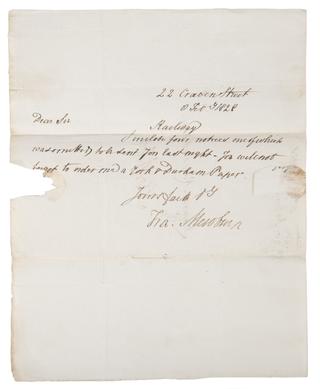 22 Craven Street
8 Feby 1828
Dear Sir
Railway
I inclose four notices one of which
was omitted to be sent you last night. You will not
forget to order me a York & Durham Paper
Yours
Fra. Mewburn